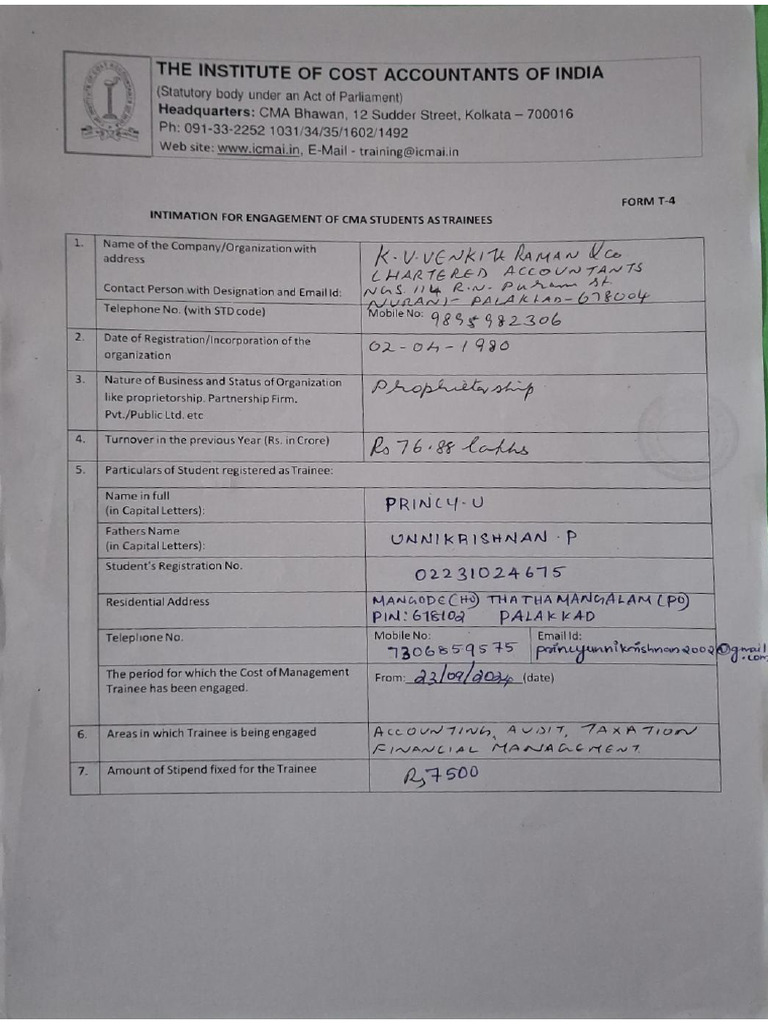 THE INSTITUTE OF COST ACCOUNTANTS OF INDIA
(Statutory body under an Act of Parliament)
Headquarters: CMA Bhawan, 12 Sudder Street, Kolkata – 700016
Ph: 091-33-2252 1031/34/35/1602/1492
Web site: www.icmai.in, E-Mail - training@icmai.in
FORM T-4
INTIMATION FOR ENGAGEMENT OF CMA STUDENTS AS TRAINEES
1. Name of the Company/Organization with address
K.V.VENKITA RAMAN & Co
CHARTERED ACCOUNTANTS
Contact Person with Designation and Email Id:
NGS 114 R.N. Puram St.
NURANI- PALAKKAD-678004
Telephone No. (with STD code) Mobile No: 9895982306
2. Date of Registration/Incorporation of the organization
02-04-1980
3. Nature of Business and Status of Organization
like proprietorship. Partnership Firm.
Pvt./Public Ltd. etc
Proprietorship
4. Turnover in the previous Year (Rs. in Crore) Rs 76.88 lakhs
5. Particulars of Student registered as Trainee:
Name in full
(in Capital Letters):
PRINCY.U
Fathers Name
(in Capital Letters):
UNNIKRISHNAN.P
Student's Registration No. 02231024675
Residential Address MANGODE(HO) THATHAMANGALAM(PO)
PIN:678102 PALAKKAD
Telephone No. Mobile No: 7306859575
Email Id: princyunnikrishnan2002@gmail.com
The period for which the Cost of Management
Trainee has been engaged.
From: 23/09/2024 (date)
6. Areas in which Trainee is being engaged ACCOUNTING, AUDIT, TAXATION
FINANCIAL MANAGEMENT
7. Amount of Stipend fixed for the Trainee Rs 7500